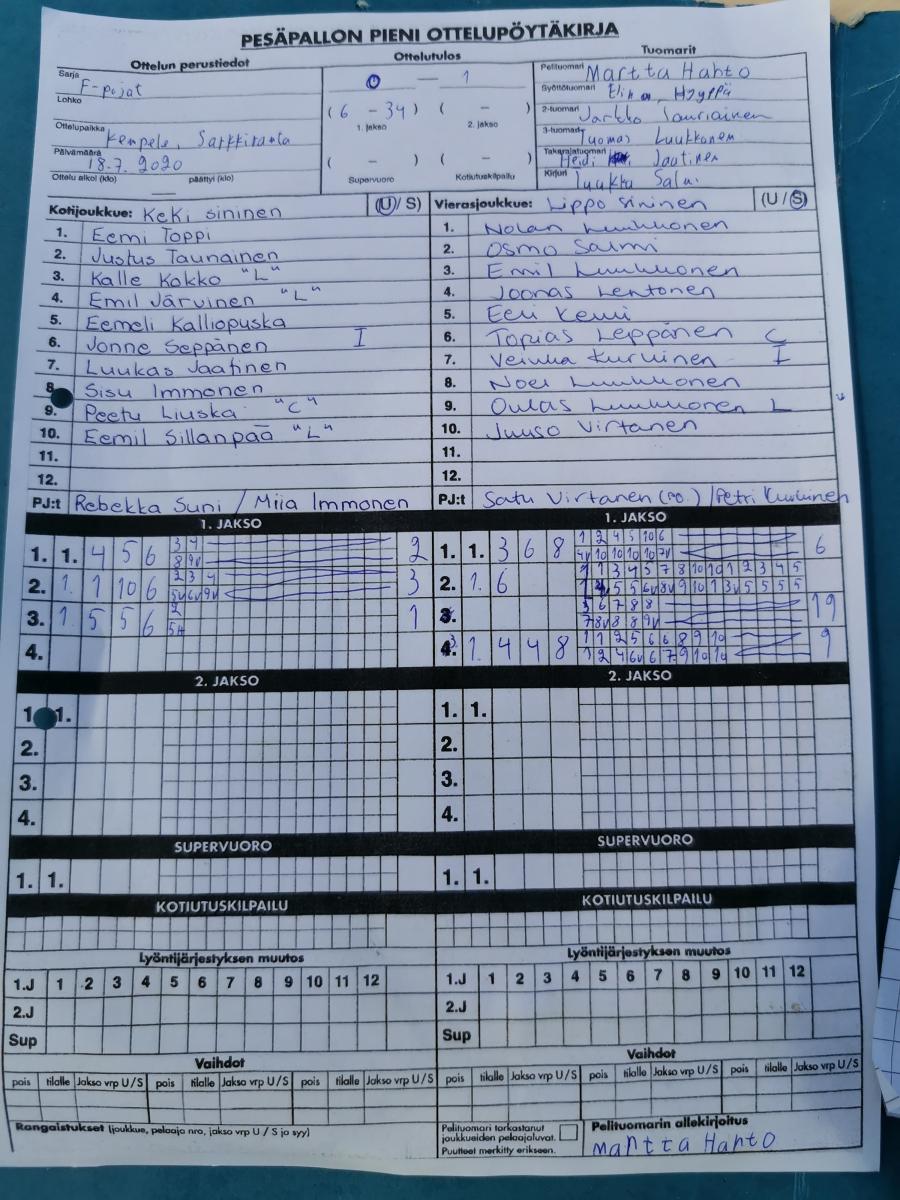 PESÄPALLON PIENI OTTELUPÖYTÄKIRJA
Ottelun perustiedot
Ottelutulos
Tuomarit
Sarja F-pojat
Lohko
Ottelupaikka Kempele, Sarkkiranta
Päivämäärä 18.7. 2020
Ottelu alkoi (klo) päättyi (klo)
0 — 1
( 6 – 34 ) ( – )
1. jakso 2. jakso
( – ) ( – )
Supervuoro Kotiutuskilpailu
Pelituomari Martta Hahto
Syöttötuomari Elina
2-tuomari Jarkko
3-tuomari Tuomas Luukkonen
Takarajatuomari Heidi Jaatinen
Kirjuri Tuukka
Kotijoukkue: KeKi sininen (U/ S)
1. Eemi Toppi
2. Justus Taunainen
3. Kalle Kokko "L"
4. Emil Järvinen "L"
5. Eemeli Kalliopuska
6. Jonne Seppänen I
7. Luukas Jaatinen
8. Sisu Immonen
9. Peetu Liuska "C"
10. Eemil Sillanpää "L"
11.
12.
PJ:t Rebekka Suni / Miia Immonen
Vierasjoukkue: Lippo Sininen (U / S)
1. Nolan Luukkonen
2. Osmo Salmi
3. Emil Luukkonen
4. Joonas Lehtonen
5. Eeli Kemi
6. Topias Leppänen C
7. Veikka Kurvinen I
8. Noel Luukkonen
9. Oulas Luukkonen L
10. Juuso Virtanen
11.
12.
PJ:t Satu Virtanen (po.) / Petri Kurvinen
1. JAKSO
1. 1. 4 5 6 3 4 2
8 9v
2. 1. 1 10 6 2 3 4 3
5v 6v 9v
3. 1. 5 5 6 2 1
4.
1. JAKSO
1. 1. 3 6 8 1 2 4 5 10 6 6
4v 10 10 10 10 7v
2. 1. 6 1 1 3 4 5 7 8 10 10 1 2 3 4 5
3. 3 6 7 8 8 19
7 8v 8 8 9v
4. 1. 4 4 8 1 1 2 5 6 6 8 9 10 9
1 2 4 6v 6 7 9 10 10
2. JAKSO
1. 1.
2.
3.
4.
2. JAKSO
1. 1.
2.
3.
4.
SUPERVUORO
1. 1.
SUPERVUORO
1. 1.
KOTIUTUSKILPAILU
KOTIUTUSKILPAILU
Lyöntijärjestyksen muutos
1.J 1 2 3 4 5 6 7 8 9 10 11 12
2.J
Sup
Lyöntijärjestyksen muutos
1.J 1 2 3 4 5 6 7 8 9 10 11 12
2.J
Sup
Vaihdot
pois tilalle Jakso vrp U/S pois tilalle Jakso vrp U/S pois tilalle Jakso vrp U/S
Vaihdot
pois tilalle Jakso vrp U/S pois tilalle Jakso vrp U/S pois tilalle Jakso vrp U/S
Rangaistukset (joukkue, pelaaja nro, jakso vrp U / S ja syy)
Pelituomari tarkastanut
joukkueiden pelaajaluvat.
Puutteet merkitty erikseen.
Pelituomarin allekirjoitus
Martta Hahto